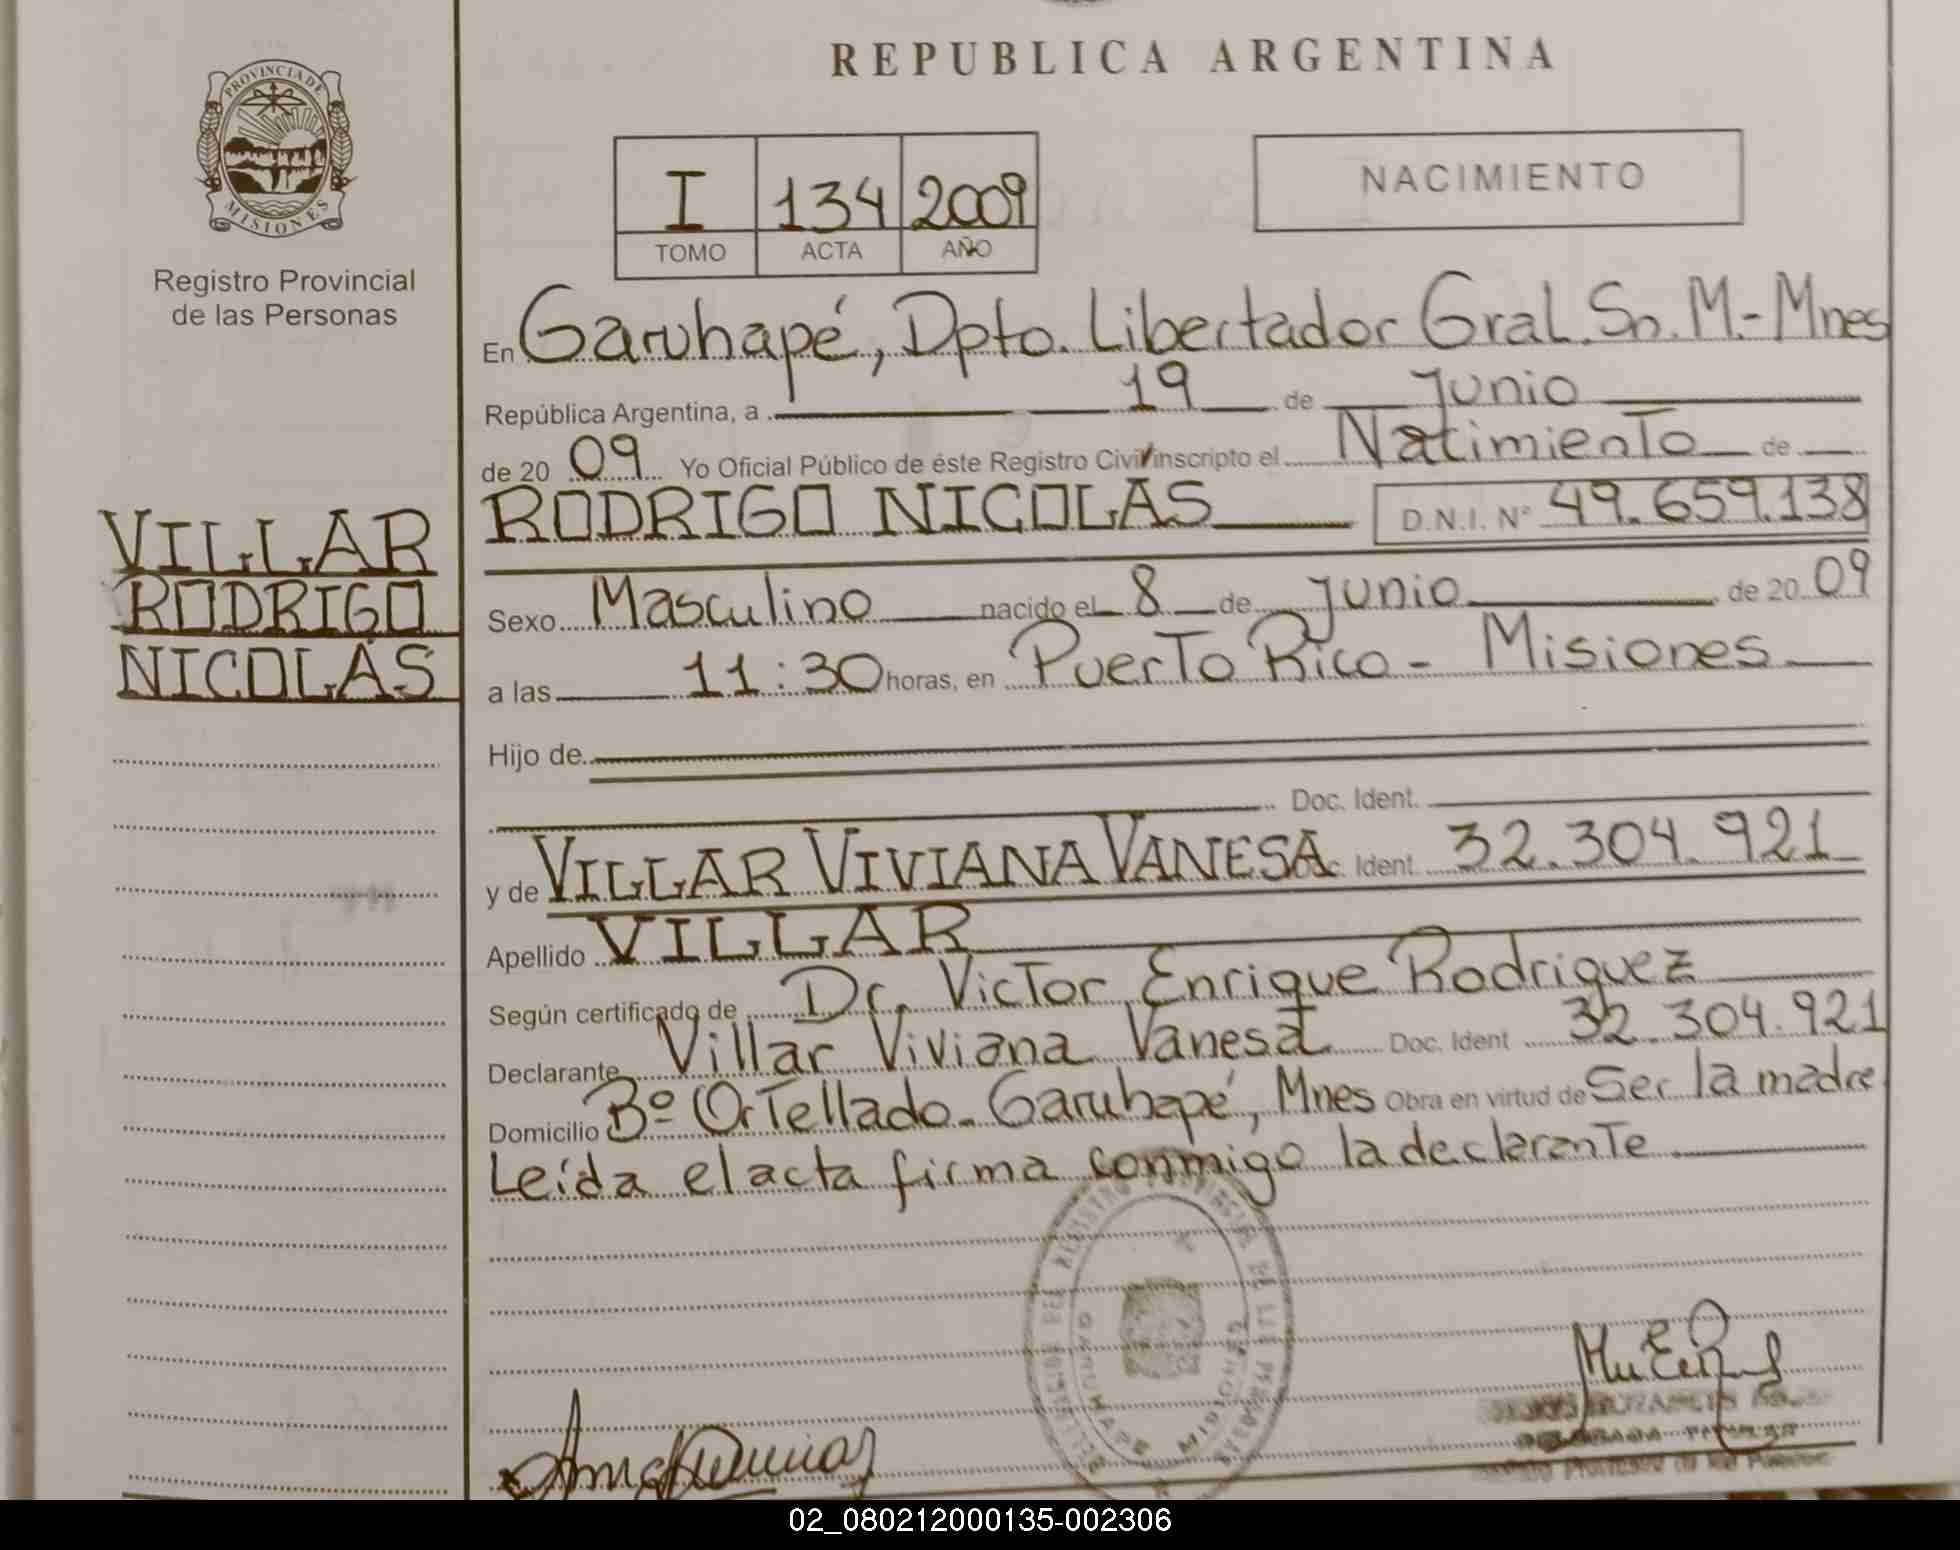 REPUBLICA ARGENTINA
PROVINCIA DE
MISIONES
Registro Provincial
de las Personas
I 134 2009
TOMO ACTA AÑO
NACIMIENTO
En Garuhapé, Dpto. Libertador Gral. Sn. M.- Mnes
República Argentina, a 19 de Junio
de 20 09 Yo Oficial Público de éste Registro Civil inscripto el Nacimiento de
VILLAR
RODRIGO
NICOLÁS
RODRIGO NICOLAS D.N.I. N° 49.659.138
Sexo Masculino nacido el 8 de Junio de 20 09
a las 11:30 horas, en Puerto Rico - Misiones
Hijo de
Doc. Ident.
y de VILLAR VIVIANA VANESA Ident. 32.304.921
Apellido VILLAR
Según certificado de Dr. Victor Enrique Rodriguez
Declarante Villar Viviana Vanesa Doc. Ident 32.304.921
Domicilio Bº Ortellado - Garuhapé, Mnes Obra en virtud de Ser la madre
Leída el acta firma conmigo la declarante
GARUHAPE
MISIONES
02_080212000135-002306